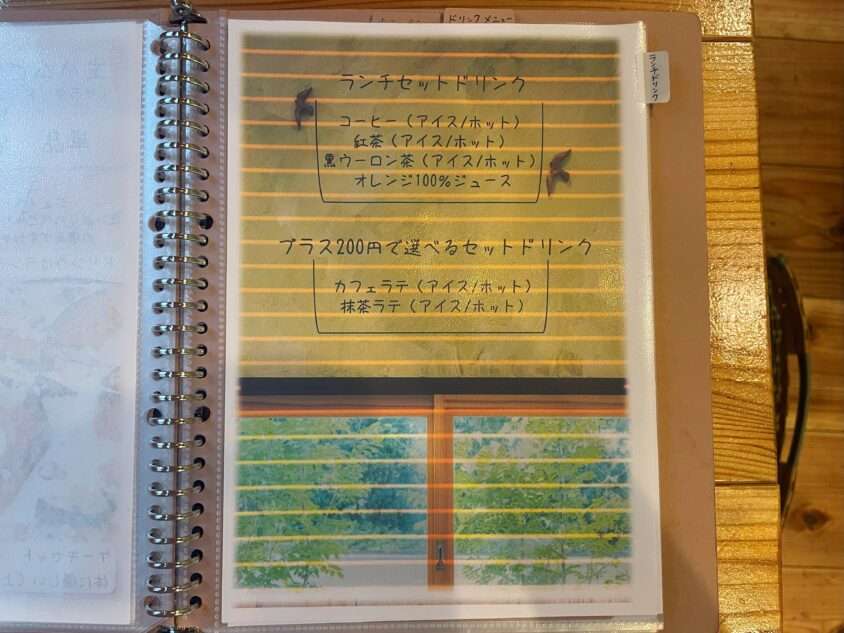 ドリンクメニュー
ランチドリンク
ランチセットドリンク
コーヒー(アイス/ホット)
紅茶(アイス/ホット)
黒ウーロン茶(アイス/ホット)
オレンジ100%ジュース
プラス200円で選べるセットドリンク
カフェラテ(アイス/ホット)
抹茶ラテ(アイス/ホット)
ケーキセット